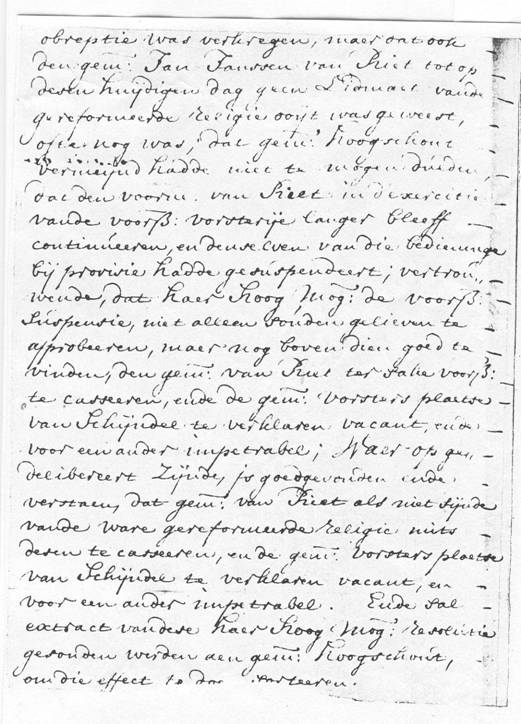 obreptie was verkregen, maer dat ook
den gem: Jan Janssen van Riet tot op
desen huijdigen dag geen Lidmaet vande
gereformeerde Religie ooijt was geweest,
ofte nog was, dat gem: Hoogschout
vermeijnd hadde niet te mogen dulden,
dat den voorn. van Riet in d'exercitie
vande voorß: vorsterije langer bleeff
continueeren, en denselven van die bedieninge
bij provisie hadde gesuspendeert; vertrou„
wende, dat haer Hoog Mog: de voorß:
suspensie, niet alleen souden gelieven te
approbeeren, maer nog boven dien goed te
vinden, den gem: van Riet ter sake voorß:
te casseeren, ende de gem: vorsters plaetse
van Schijndel te verklaren vacant, ende
voor een ander impetrabel; Waer op ge„
delibereert Zijnde, js goedgevonden ende
verstaen, dat gem: van Riet als niet sijnde
vande ware gereformeerde Religie mits
desen te casseeren, en de gem: vorsters plaetse
van Schijndel te verklaren vacant, en
voor een ander impetrabel. Ende sal
extract vandese haer Hoog Mog: Resolutie
gesonden werden aen gem: Hoogschout,
om die effect te doen sorteeren.